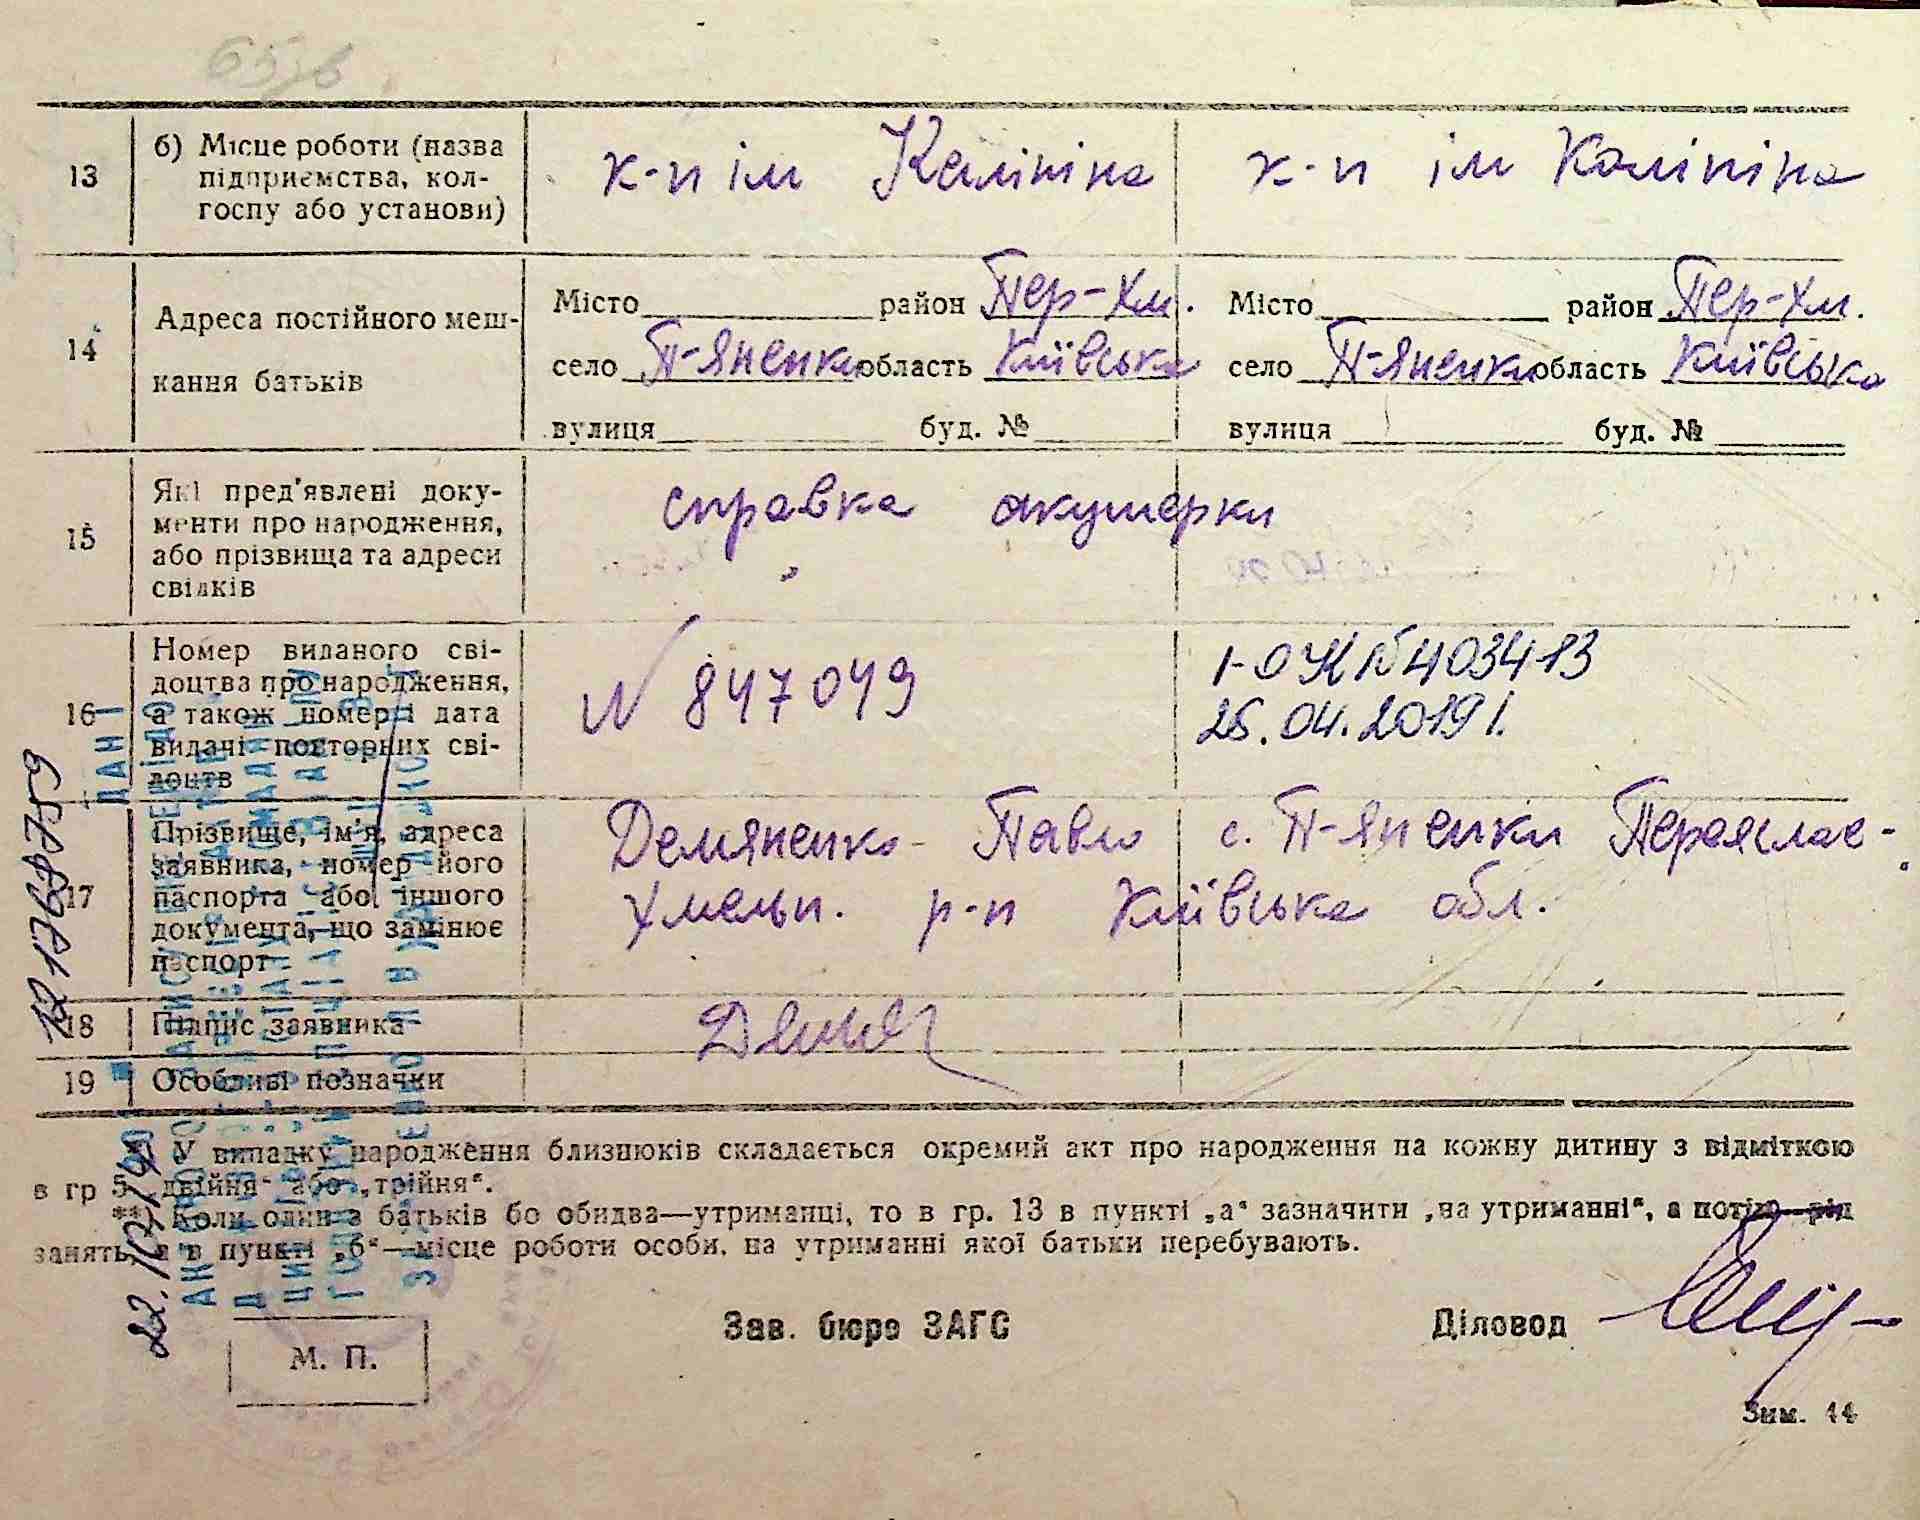 65зв
13
б) Місце роботи (назва
підприємства, кол-
госпу або установи)
к-п ім Калініна
к-п ім Калініна
14
Адреса постійного меш-
кання батьків
Місто район Пер-Хм.
село П-Яненки область Київська
вулиця буд. №
Місто район Пер-Хм.
село П-Яненки область Київська
вулиця буд. №
15
Які пред'явлені доку-
менти про народження,
або прізвища та адреси
свідків
справка акушерки
16
Номер виданого сві-
доцтва про народження,
а також номер і дата
видачі повторних сві-
доцтв
N 847049
1-ОК №403413
26.04.2019 р.
17
Прізвище, ім'я, адреса
заявника, номер його
паспорта або іншого
документа, що замінює
паспорт
Демяненко Павло с. П-Яненки Переяслав-
Хмельн. р-н Київська обл.
18
Підпис заявника
19
Особливі позначки
* У випадку народження близнюків складається окремий акт про народження на кожну дитину з відміткою
в гр 5 „двійня" або „трійня".
** Коли один з батьків бо обидва—утриманці, то в гр. 13 в пункті „а" зазначити „на утриманні", а потім рід
занять, а в пункті „б"—місце роботи особи, на утриманні якої батьки перебувають.
М. П.
Зав. бюро ЗАГС
Діловод
Зим. 44